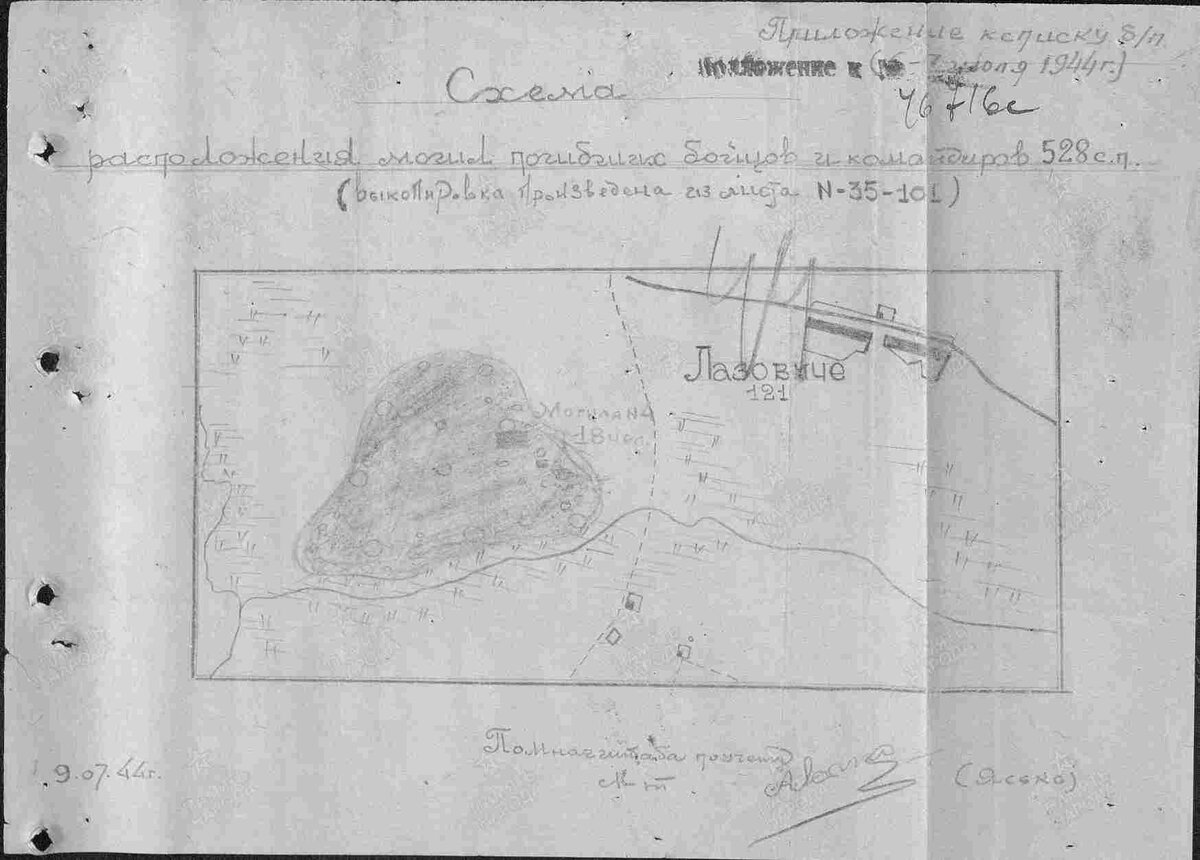 Приложение к списку б/п
Положение к
(6-7 июля 1944г.)
Схема
расположения могил погибших бойцов и командиров 528 с.п.
(выкопировка произведена из листа N-35-101)
Лазовиче
121
Могила №
18 чел.
Помначштаба по учету
(Ясько)
9.07.44г.